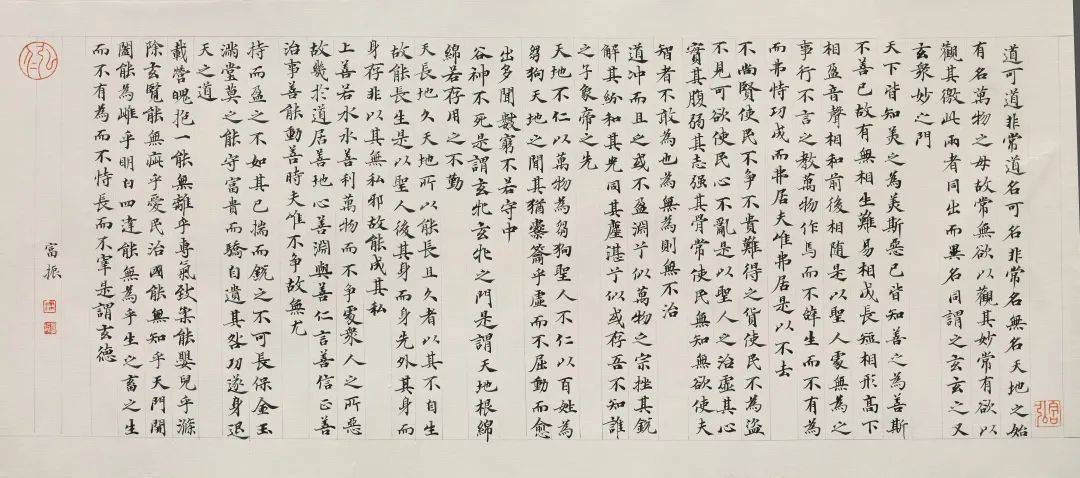 道可道非常道名可名非常名無名天地之始
有名萬物之母故常無欲以觀其妙常有欲以
觀其徼此兩者同出而異名同謂之玄玄之又
玄衆妙之門
天下皆知美之為美斯惡已皆知善之為善斯
不善已故有無相生難易相成長短相形高下
相盈音聲相和前後相隨是以聖人處無為之
事行不言之教萬物作焉而不辭生而不有為
而弗恃功成而弗居夫唯弗居是以不去
不尚賢使民不爭不貴難得之貨使民不為盜
不見可欲使民心不亂是以聖人之治虛其心
實其腹弱其志强其骨常使民無知無欲使夫
智者不敢為也為無為則無不治
道冲而用之或不盈淵兮似萬物之宗挫其銳
解其紛和其光同其塵湛兮似或存吾不知誰
之子象帝之先
天地不仁以萬物為芻狗聖人不仁以百姓為
芻狗天地之間其猶橐籥乎虛而不屈動而愈
出多聞數窮不若守中
谷神不死是謂玄牝玄牝之門是謂天地根綿
綿若存用之不勤
天長地久天地所以能長且久者以其不自生
故能長生是以聖人後其身而身先外其身而
身存非以其無私邪故能成其私
上善若水水善利萬物而不爭處衆人之所惡
故幾於道居善地心善淵與善仁言善信正善
治事善能動善時夫唯不爭故無尤
持而盈之不如其已揣而銳之不可長保金玉
滿堂莫之能守富貴而驕自遺其咎功遂身退
天之道
載營魄抱一能無離乎專氣致柔能嬰兒乎滌
除玄覽能無疵乎愛民治國能無知乎天門開
闔能為雌乎明白四達能無為乎生之畜之生
而不有為而不恃長而不宰是謂玄德
富振